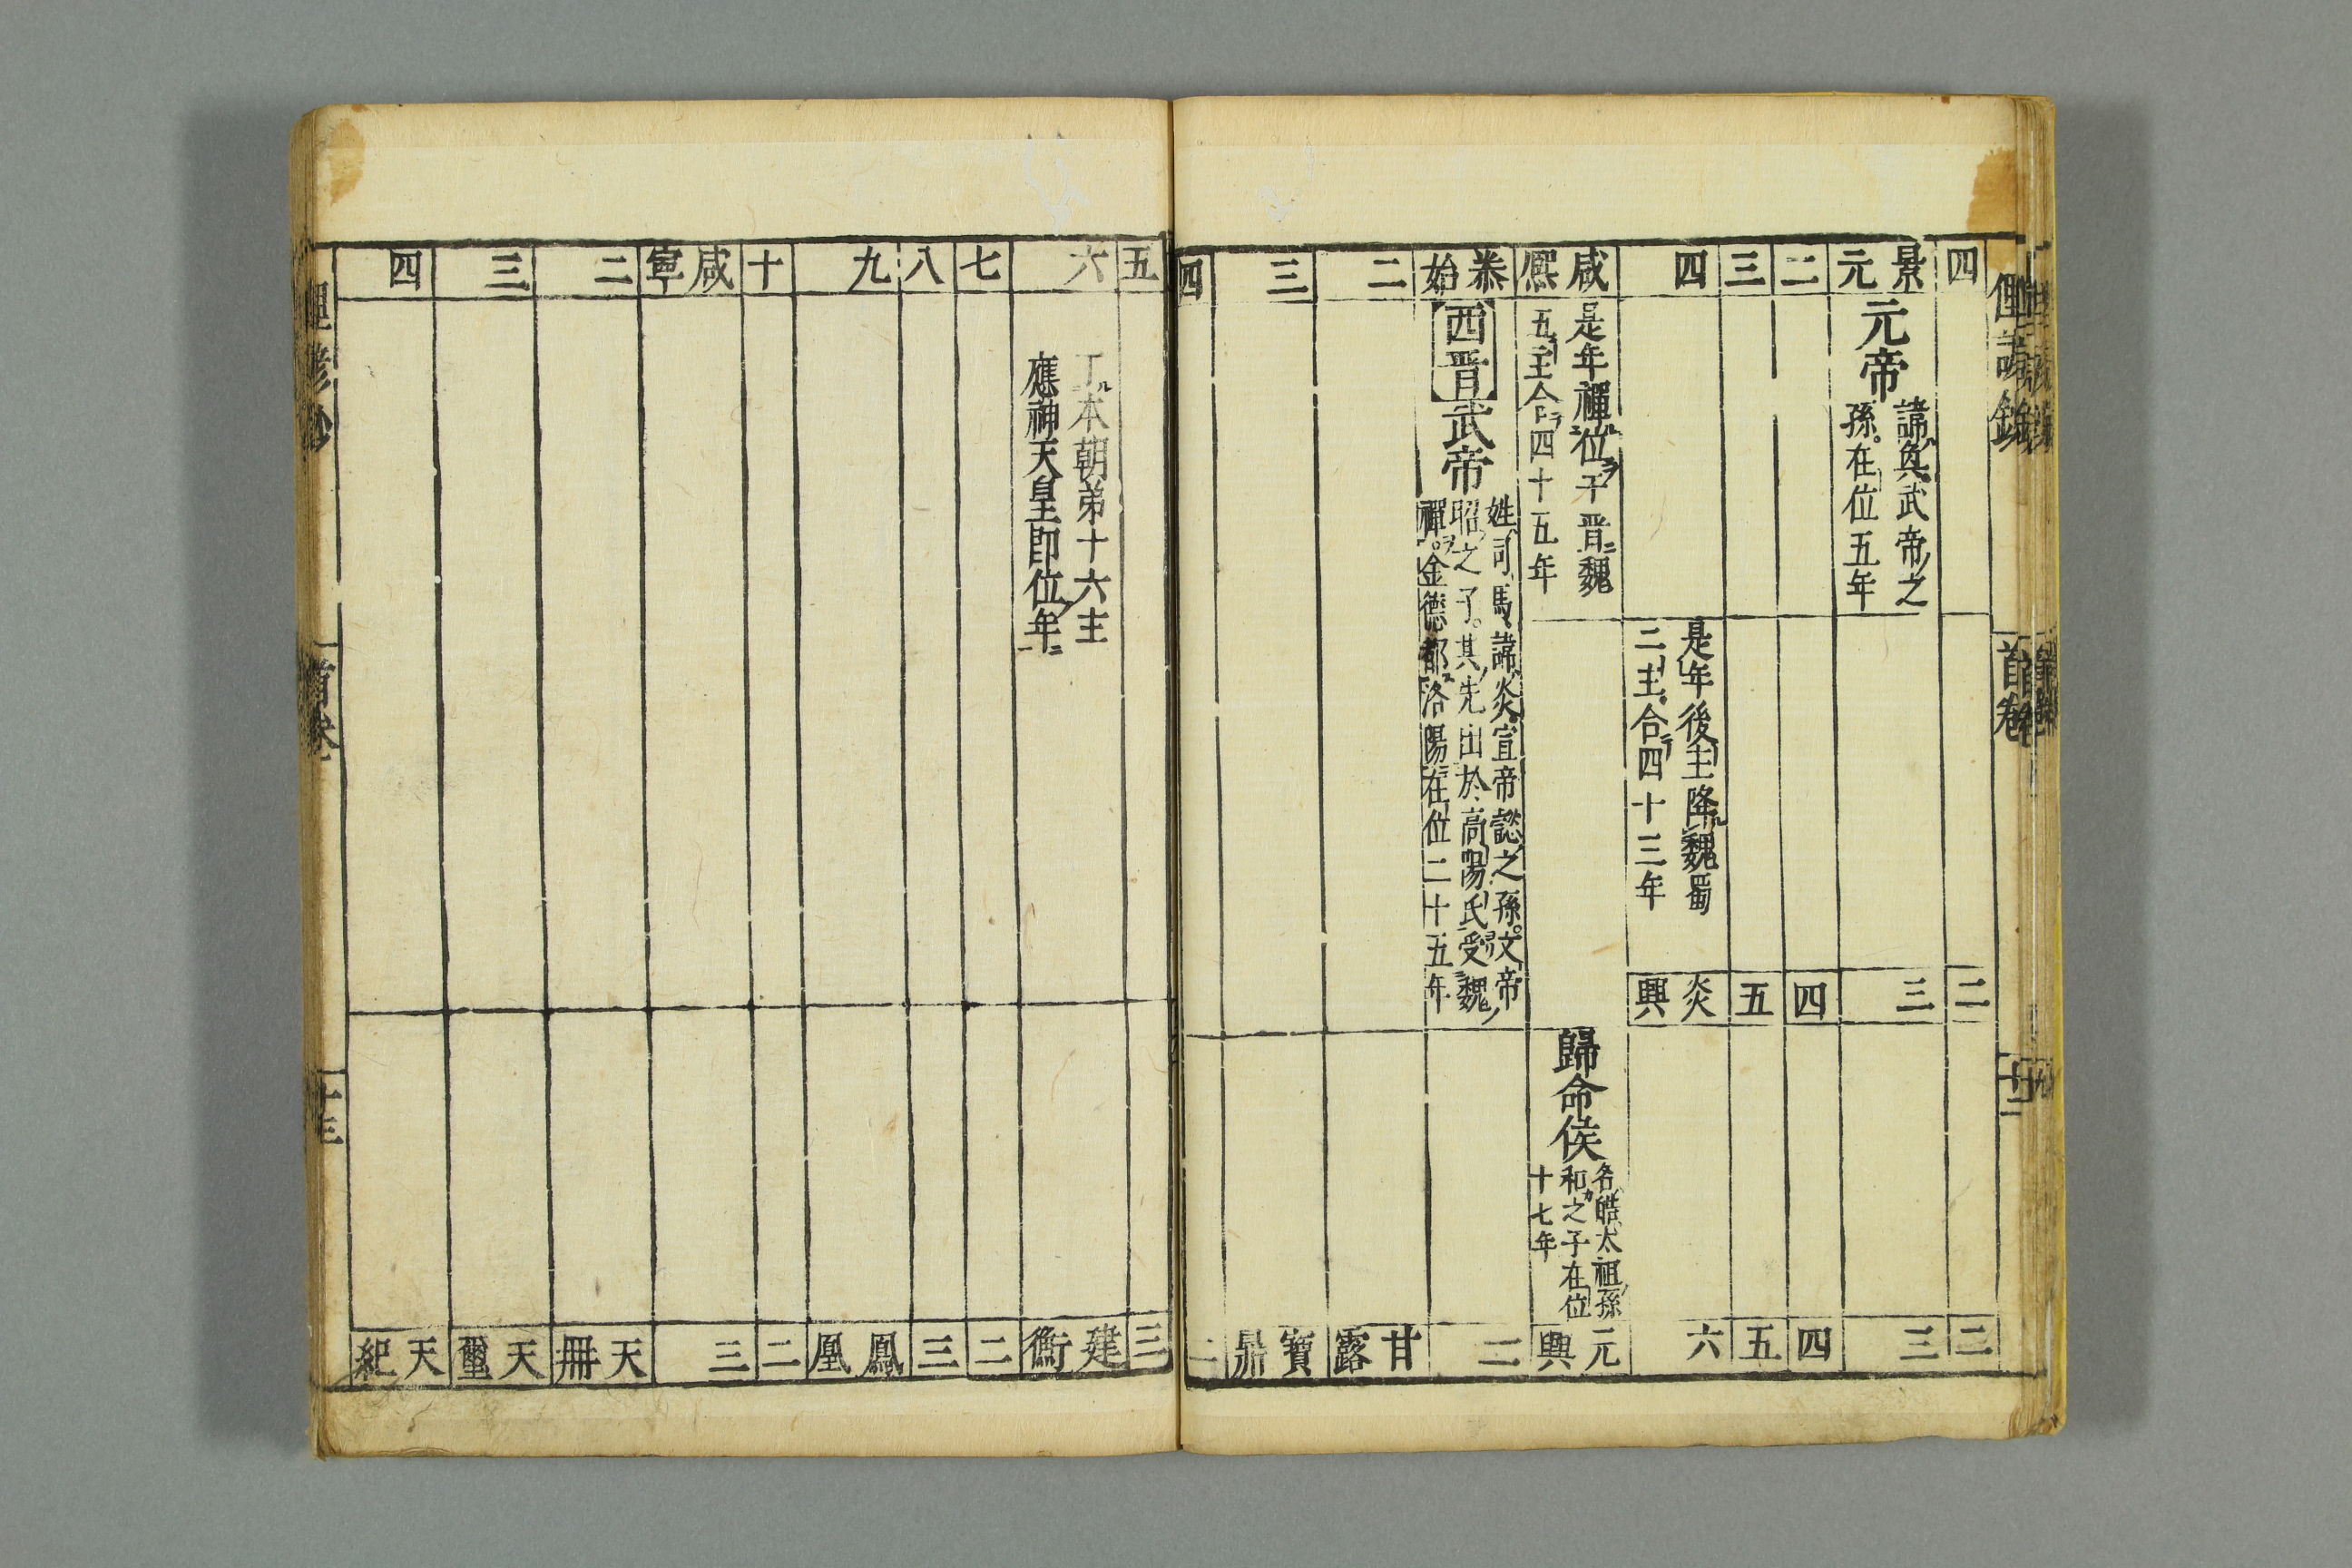 四
二
二
景元
元帝
諱奐武帝之
孫在位五年
三
三
二
四
四
三
五
五
四
是年後主降魏蜀
二主合四十三年
炎興
六
咸熈
是年禪位于晋魏
五主合四十五年
歸命侯
名皓太祖孫
和之子在位
十七年
元興
泰始
西晋
武帝
姓司馬諱炎宣帝懿之孫文帝
昭之子其先出於高陽氏受魏
禪金德都洛陽在位二十五年
二
二
甘露
三
寶鼎
四
二
五
三
六
丁本朝弟十六主
應神天皇即位年
建衡
七
二
八
三
九
鳳凰
十
二
咸寧
三
二
天冊
三
天璽
四
天紀
首卷
十三